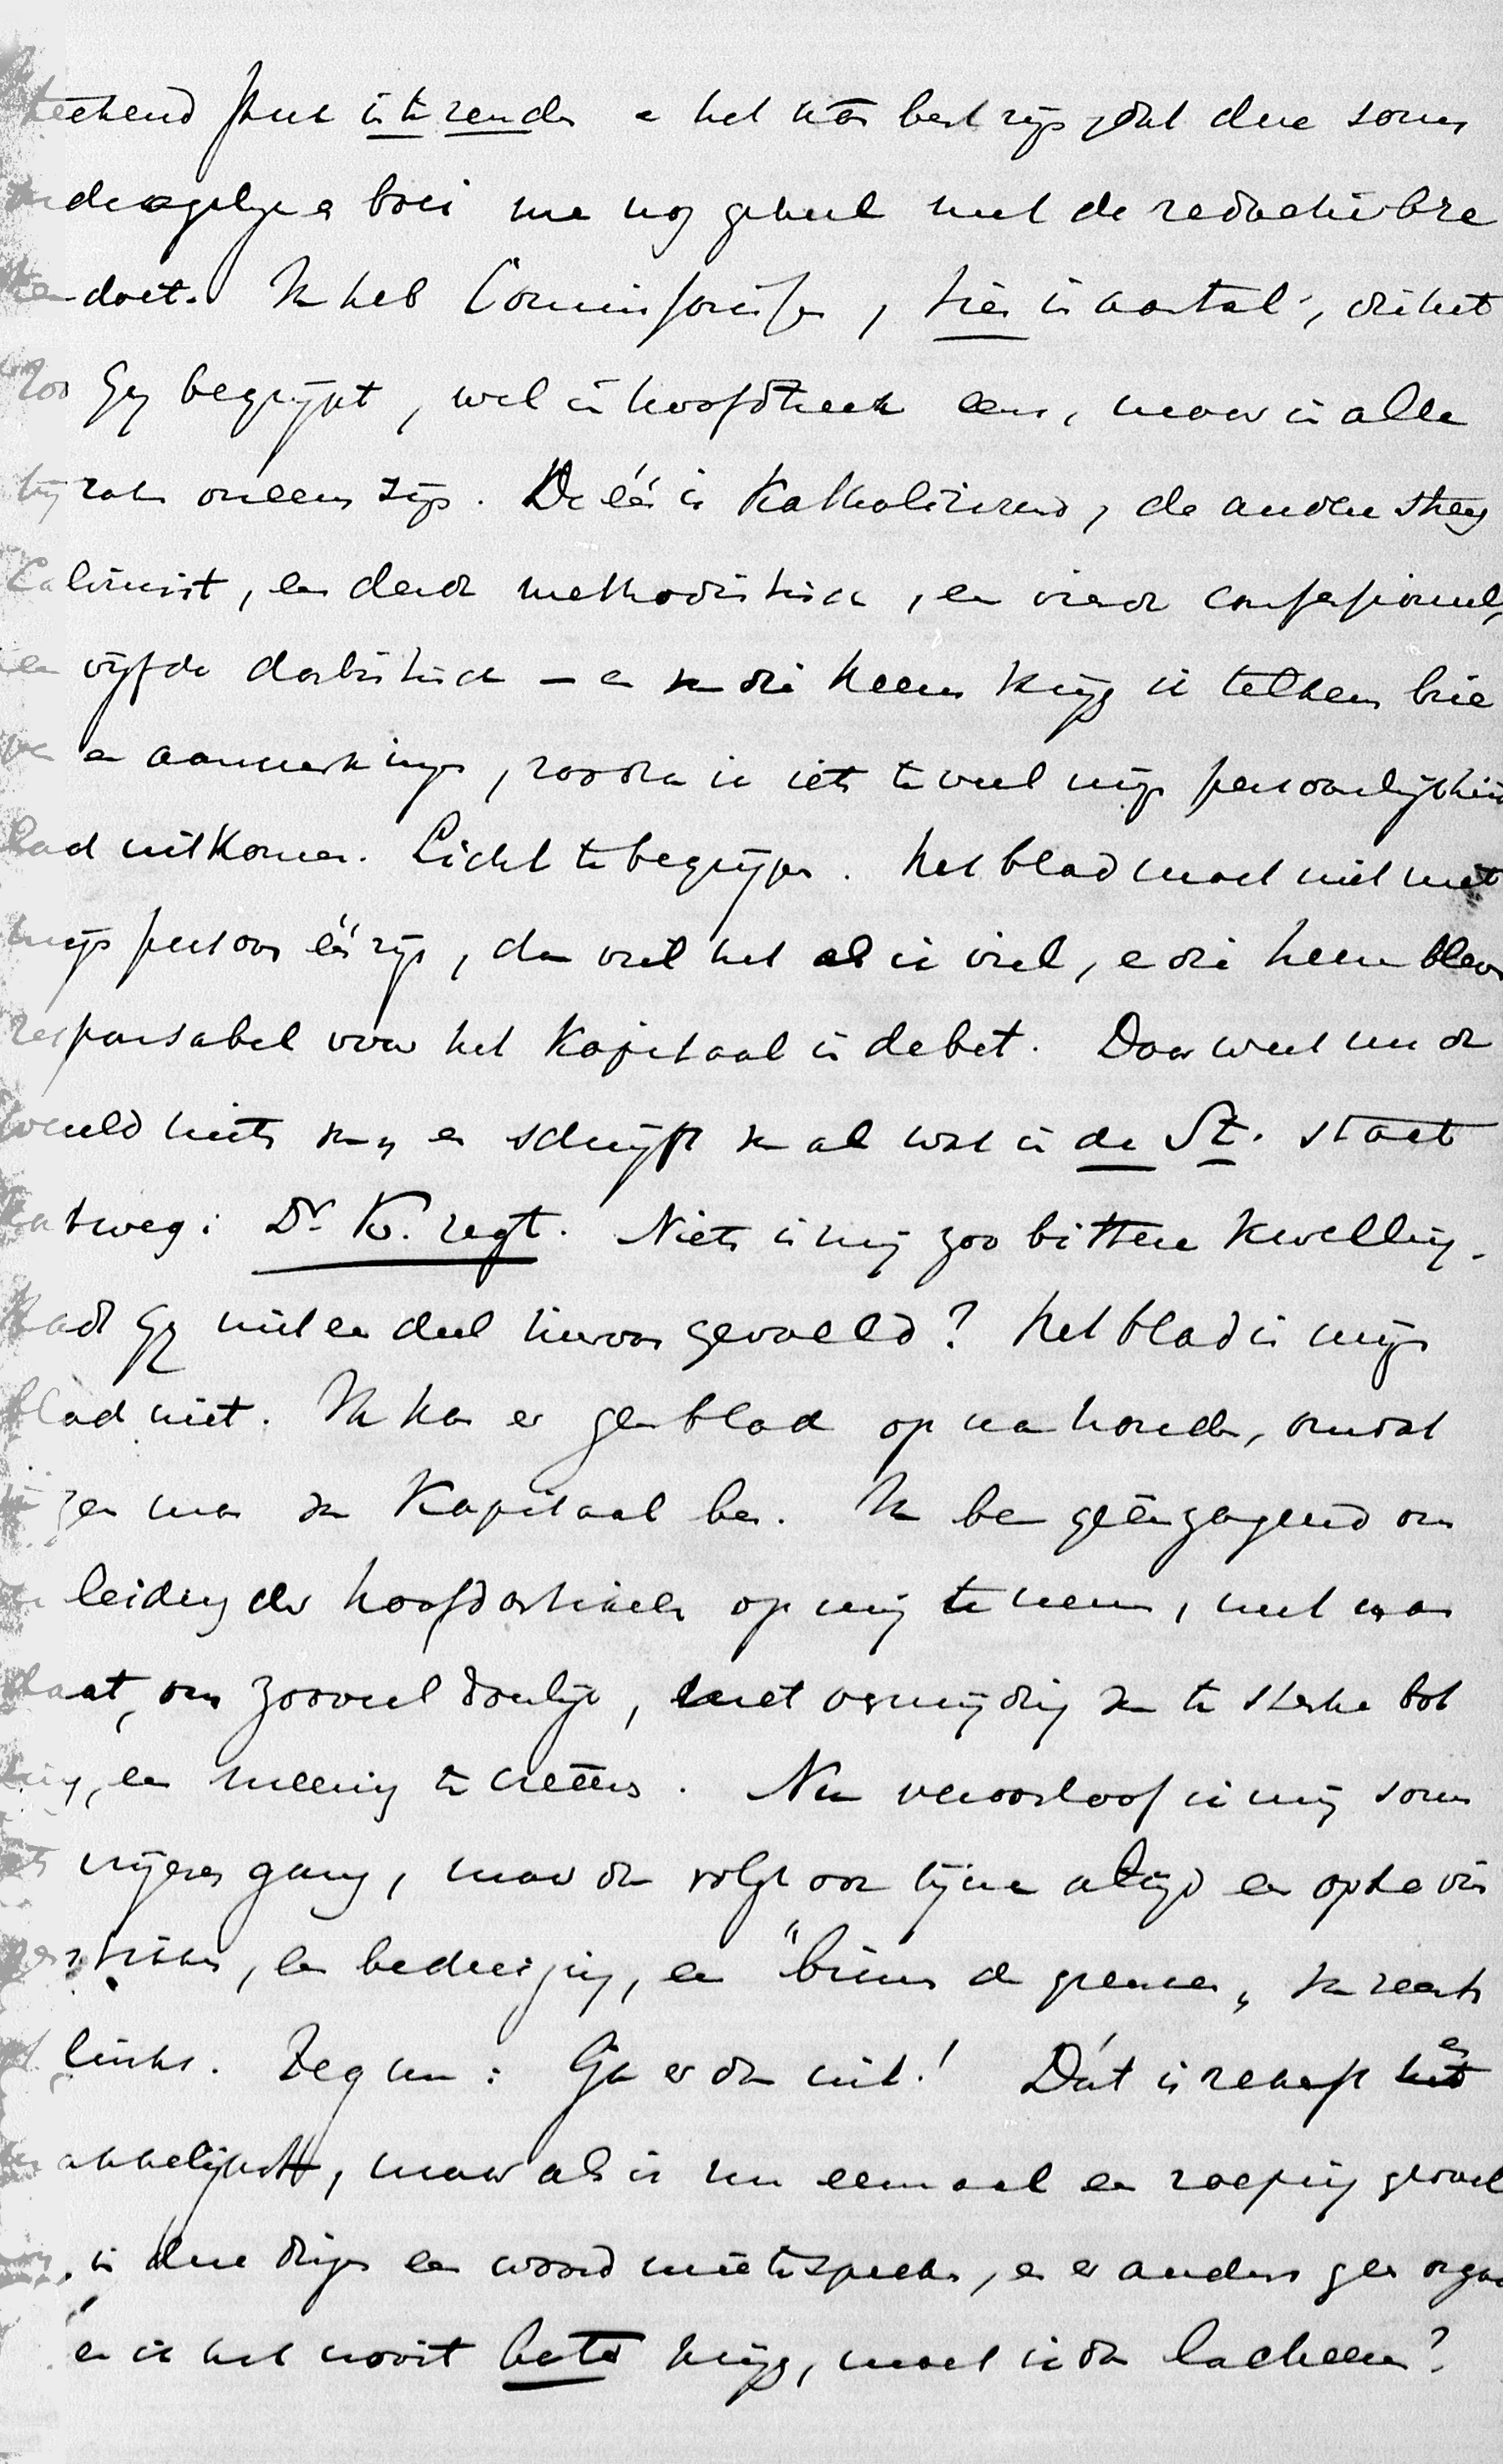 teekend stuk in te zenden en het kan best zijn, dat deze soms
ondragelijke boei me nog geheel met de redactie bre-
ken doet. Ik heb Commissarissen, tien in aantal, die het
zoo Gij begrijpt, wel in hoofdzaak eens, maar in alle
bijzaken oneens zijn. De één is Katholiserend, de andere streng
Calvinist, een derde methodistisch, een vierde confessioneel,
een vijfde darbistisch — en van die heeren krijg ik telkens brie
ven en aanmerkingen, zoodra ik iets te veel mijn persoonlijkheid
laat uitkomen. Licht te begrijpen. Het blad moet niet met
mijn persoon één zijn, dan viel het als ik viel, en die heeren bleven
responsabel voor het Kapitaal in debet. Daar weet nu de
wereld niets van, en schrijft van al wat in de St. staat
kortweg: Dr. K. zegt. Niets is mij zoo bittere kwelling.
Hadt Gij niet een deel hiervan gevoeld? Het blad is mijn
blad niet. Ik kan er geen blad op na houden, omdat
geen man van Kapitaal ben. Ik ben geëngageerd om
de leiding der hoofdartikelen op mij te nemen, met man
daat, om zooveel doenlijk, met vermijding van te sterke bot
sing, een meening te uiten. Nu veroorloof ik mij soms
iets vrijeren gang, maar dan volgt ook bijna altijd een op de vin
gers tikken, een bedreiging, een "binnen de grenzen" van rechts
of links. Zeg nu: Ga er dan uit! Dát is zeker het
gemakkelijkst, maar als ik nu eenmaal een roeping gevoel
om in deze dingen een woord mee te spreken, en er anders geen orgaan
is en ik het nooit beter krijg, moet ik dan lacheeren?